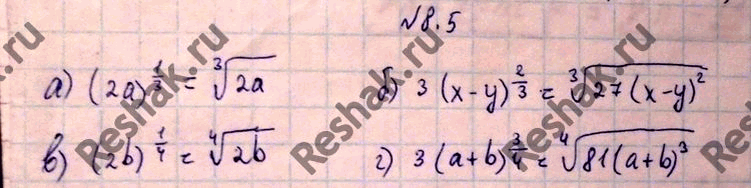 №8.5
а) (2a)^{1/3} = ∛(2a) б) 3(x-y)^{2/3} = ∛(27(x-y)²)
в) (2b)^{1/4} = ∜(2b) г) 3(a+b)^{3/4} = ∜(81(a+b)³)
Reshak.ru
Reshak.ru
Reshak.ru
Reshak.ru